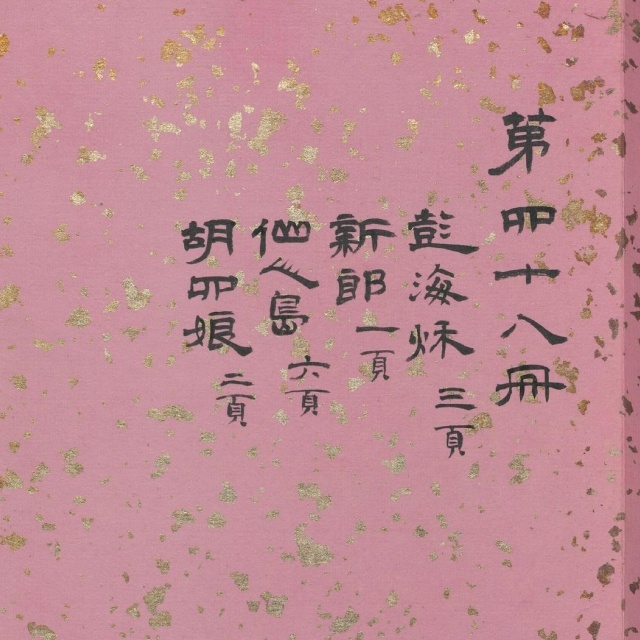 第四十八冊
彭海秌 三頁
新郎 一頁
仙人島 六頁
胡四娘 二頁